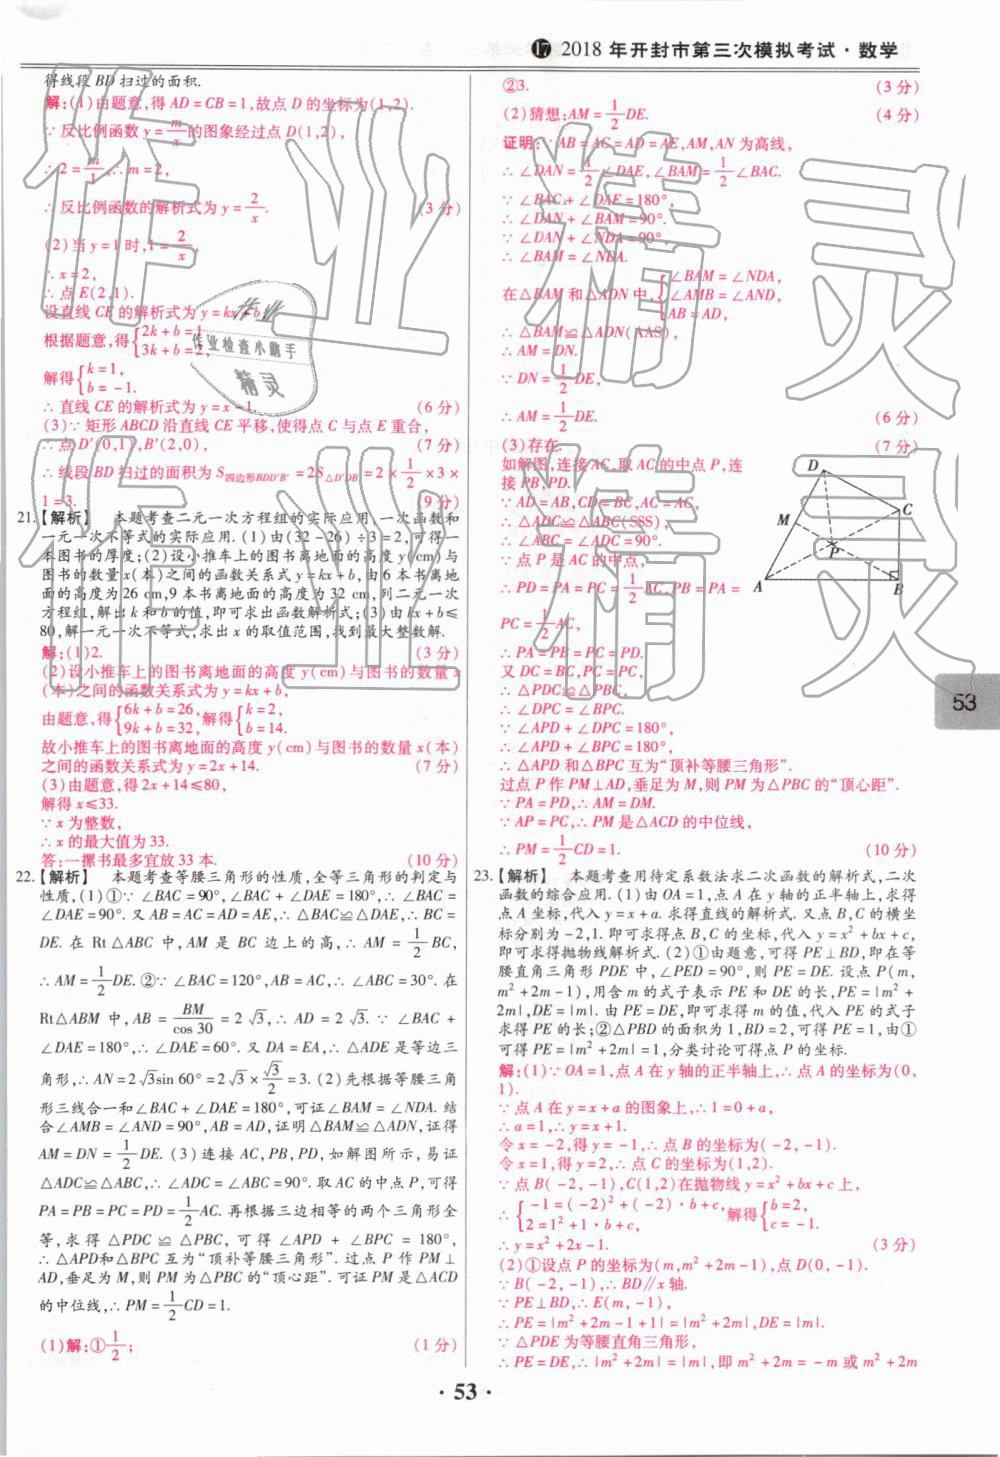 ⑰ 2018 年开封市第三次模拟考试·数学
得线段 BD 扫过的面积.
解:(1)由题意,得 AD = CB = 1,故点 D 的坐标为(1,2).
∵ 反比例函数 y = m/x 的图象经过点 D(1,2),
∴ 2 = m/1, ∴ m = 2,
∴ 反比例函数的解析式为 y = 2/x. (3 分)
(2)当 y = 1 时,1 = 2/x,
∴ x = 2,
∴ 点 E(2,1).
设直线 CE 的解析式为 y = kx + b,
根据题意,得{2k + b = 1, 3k + b = 2,
解得{k = 1, b = -1.
∴ 直线 CE 的解析式为 y = x - 1. (6 分)
(3)∵ 矩形 ABCD 沿直线 CE 平移,使得点 C 与点 E 重合,
∴ 点 D′(0,1),B′(2,0), (7 分)
∴ 线段 BD 扫过的面积为 S四边形BDD′B′ = 2S△D′DB = 2 × 1/2 × 3 ×
1 = 3. (9 分)
21.【解析】 本题考查二元一次方程组的实际应用,一次函数和
一元一次不等式的实际应用. (1)由(32 - 26) ÷ 3 = 2,可得一
本图书的厚度;(2)设小推车上的图书离地面的高度 y(cm)与
图书的数量 x(本)之间的函数关系式 y = kx + b,由 6 本书离地
面的高度为 26 cm,9 本书离地面的高度为 32 cm,列二元一次
方程组,解出 k 和 b 的值,即可求出函数解析式;(3)由 kx + b ≤
80,解一元一次不等式,求出 x 的取值范围,找到最大整数解.
解:(1)2. (3 分)
(2)设小推车上的图书离地面的高度 y(cm)与图书的数量 x
(本)之间的函数关系式为 y = kx + b,
由题意,得{6k + b = 26, 9k + b = 32, 解得{k = 2, b = 14.
故小推车上的图书离地面的高度 y(cm)与图书的数量 x(本)
之间的函数关系式为 y = 2x + 14. (7 分)
(3)由题意,得 2x + 14 ≤ 80,
解得 x ≤ 33.
∵ x 为整数,
∴ x 的最大值为 33.
答:一摞书最多宜放 33 本. (10 分)
22.【解析】 本题考查等腰三角形的性质,全等三角形的判定与
性质,(1)①∵ ∠BAC = 90°,∠BAC + ∠DAE = 180°,∴ ∠BAC =
∠DAE = 90°. 又 AB = AC = AD = AE,∴ △BAC≌△DAE,∴ BC =
DE. 在 Rt△ABC 中,AM 是 BC 边上的高,∴ AM = 1/2 BC,
∴ AM = 1/2 DE. ②∵ ∠BAC = 120°,AB = AC,∴ ∠ABC = 30°. 在
Rt△ABM 中,AB = BM/cos 30 = 2√3,∴ AD = 2√3. ∵ ∠BAC +
∠DAE = 180°,∴ ∠DAE = 60°. 又 DA = EA,∴ △ADE 是等边三
角形,∴ AN = 2√3sin 60° = 2√3 × √3/2 = 3. (2)先根据等腰三角
形三线合一和∠BAC + ∠DAE = 180°,可证∠BAM = ∠NDA. 结
合∠AMB = ∠AND = 90°,AB = AD,证明△BAM≌△ADN,证得
AM = DN = 1/2 DE. (3)连接 AC,PB,PD,如解图所示,易证
△ADC≌△ABC,∴ ∠ADC = ∠ABC = 90°. 取 AC 的中点 P,可得
PA = PB = PC = PD = 1/2 AC. 再根据三边相等的两个三角形全
等,求得 △PDC ≌ △PBC,可得 ∠APD + ∠BPC = 180°,
∴ △APD和△BPC 互为“顶补等腰三角形”. 过点 P 作 PM⊥
AD,垂足为 M,则 PM 为△PBC 的“顶心距”. 可证 PM 是△ACD
的中位线,∴ PM = 1/2 CD = 1.
(1)解:① 1/2; (1 分)
②3. (3 分)
(2)猜想:AM = 1/2 DE. (4 分)
证明:∵ AB = AC = AD = AE,AM,AN 为高线,
∴ ∠DAN = 1/2 ∠DAE,∠BAM = 1/2 ∠BAC.
∵ ∠BAC + ∠DAE = 180°,
∴ ∠DAN + ∠BAM = 90°.
∵ ∠DAN + ∠NDA = 90°,
∴ ∠BAM = ∠NDA.
在△BAM 和△ADN 中,{∠BAM = ∠NDA, ∠AMB = ∠AND, AB = AD,
∴ △BAM≌△ADN(AAS),
∴ AM = DN.
∵ DN = 1/2 DE,
∴ AM = 1/2 DE. (6 分)
(3)存在. (7 分)
如解图,连接 AC,取 AC 的中点 P,连
接 PB,PD.
∵ AD = AB,CD = BC,AC = AC,
∴ △ADC≌△ABC(SSS),
∴ ∠ABC = ∠ADC = 90°.
∵ 点 P 是 AC 的中点,
∴ PD = PA = PC = 1/2 AC,PB = PA =
PC = 1/2 AC,
∴ PA = PB = PC = PD.
又 DC = BC,PC = PC,
∴ △PDC≌△PBC,
∴ ∠DPC = ∠BPC.
∵ ∠APD + ∠DPC = 180°,
∴ ∠APD + ∠BPC = 180°,
∴ △APD 和△BPC 互为“顶补等腰三角形”.
过点 P 作 PM⊥AD,垂足为 M,则 PM 为△PBC 的“顶心距”.
∵ PA = PD,∴ AM = DM.
∵ AP = PC,∴ PM 是△ACD 的中位线,
∴ PM = 1/2 CD = 1. (10 分)
D
C
M
P
A
B
23.【解析】 本题考查用待定系数法求二次函数的解析式,二次
函数的综合应用. (1)由 OA = 1,点 A 在 y 轴的正半轴上,求得
点 A 坐标,代入 y = x + a. 求得直线的解析式. 又点 B,C 的横坐
标分别为 -2,1. 即可求得点 B,C 的坐标,代入 y = x² + bx + c,
即可求得抛物线解析式. (2)①由题意,可得 PE⊥BD,即在等
腰直角三角形 PDE 中,∠PED = 90°,则 PE = DE. 设点 P(m,
m² + 2m - 1),用含 m 的式子表示 PE 和 DE 的长,PE = |m² +
2m|,DE = |m|. 由 PE = DE,即可求得 m 的值,代入 PE 的式子
求得 PE 的长;②△PBD 的面积为 1,BD = 2,可得 PE = 1,由①
可得 PE = |m² + 2m| = 1,分类讨论可得点 P 的坐标.
解:(1)∵ OA = 1,点 A 在 y 轴的正半轴上,∴ 点 A 的坐标为(0,
1).
∵ 点 A 在 y = x + a 的图象上,∴ 1 = 0 + a,
∴ a = 1,∴ y = x + 1.
令 x = -2,得 y = -1,∴ 点 B 的坐标为( -2, -1).
令 x = 1,得 y = 2,∴ 点 C 的坐标为(1,2).
∵ 点 B( -2, -1),C(1,2)在抛物线 y = x² + bx + c 上,
∴ {-1 = (-2)² + (-2)·b + c, 2 = 1² + 1·b + c, 解得{b = 2, c = -1.
∴ y = x² + 2x - 1. (3 分)
(2)①设点 P 的坐标为(m,m² + 2m - 1),点 D(0, -1).
∵ B( -2, -1),∴ BD∥x 轴.
∵ PE⊥BD,∴ E(m, -1),
∴ PE = |m² + 2m - 1 + 1| = |m² + 2m|,DE = |m|.
∵ △PDE 为等腰直角三角形,
∴ PE = DE,∴ |m² + 2m| = |m|,即 m² + 2m = -m 或 m² + 2m
53
· 53 ·
作业精灵
作业精灵
作业
作业检查小助手
精灵